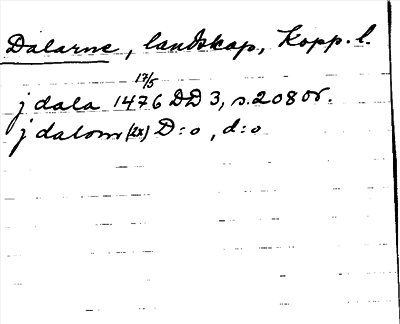 Dalarne, landskap, Kopp. l.
17/5
j dala 1476 DD 3, s. 208 or.
j dalom (2x) D:o, d:o